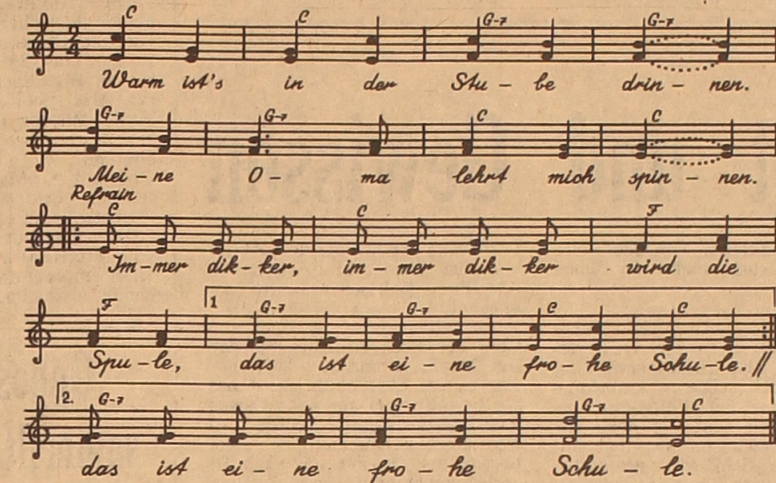 C C G-7 G-7
2 4
Warm ist's in der Stu – be drin – nen.
G-7 G-7 C C
Mei – ne O – ma lehrt mich spin – nen.
Refrain
C C F
Im – mer dik – ker, im – mer dik – ker wird die
F 1 G-7 G-7 C C
Spu – le, das ist ei – ne fro – he Schu – le. //
2. G-7 G-7 G-7 C
das ist ei – ne fro – he Schu – le.